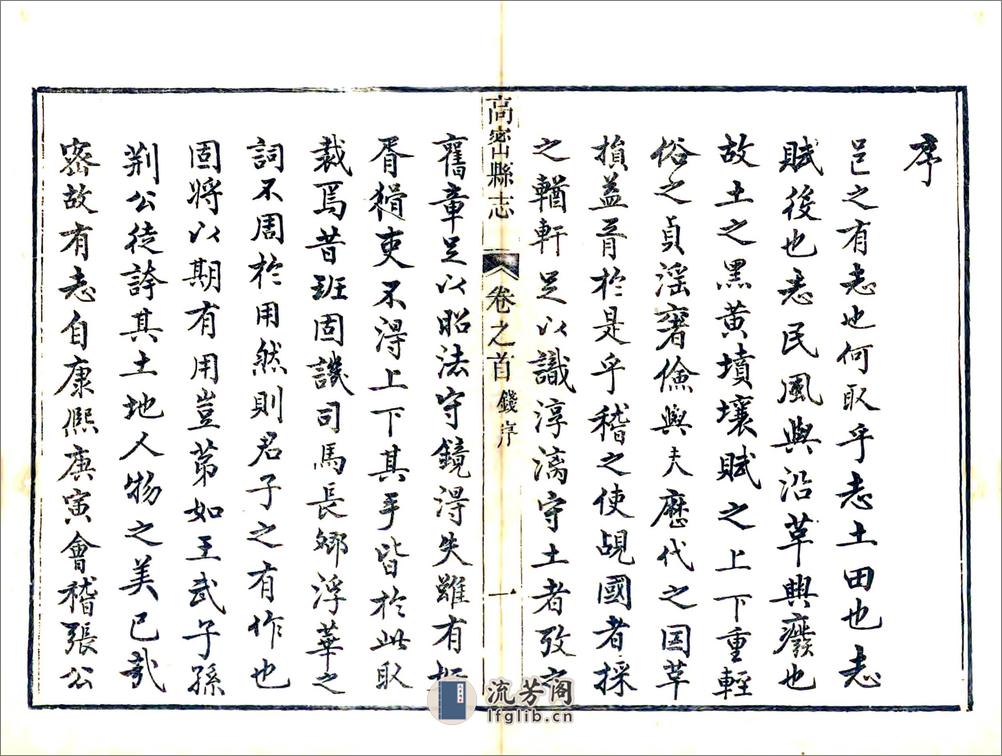 序
邑之有志也何取乎志土田也志
賦役也志民風與沿革興廢也
故土之黑黄墳壤賦之上下重輕
俗之貞淫奢儉與夫歷代之因革
損益胥於是乎稽之使覘國者採
之輶軒足以識淳漓守土者攷
高密縣志 卷之首 錢序 一
舊章足以昭法守鏡得失雖有
胥猾吏不得上下其手皆於此取
裁焉昔班固譏司馬長卿浮華之
詞不周於用然則君子之有作也
固將以期有用豈第如王武子孫
荆公徒誇其土地人物之美已哉
密故有志自康熙庚寅會稽張公
流芳阁
lfglib.cn